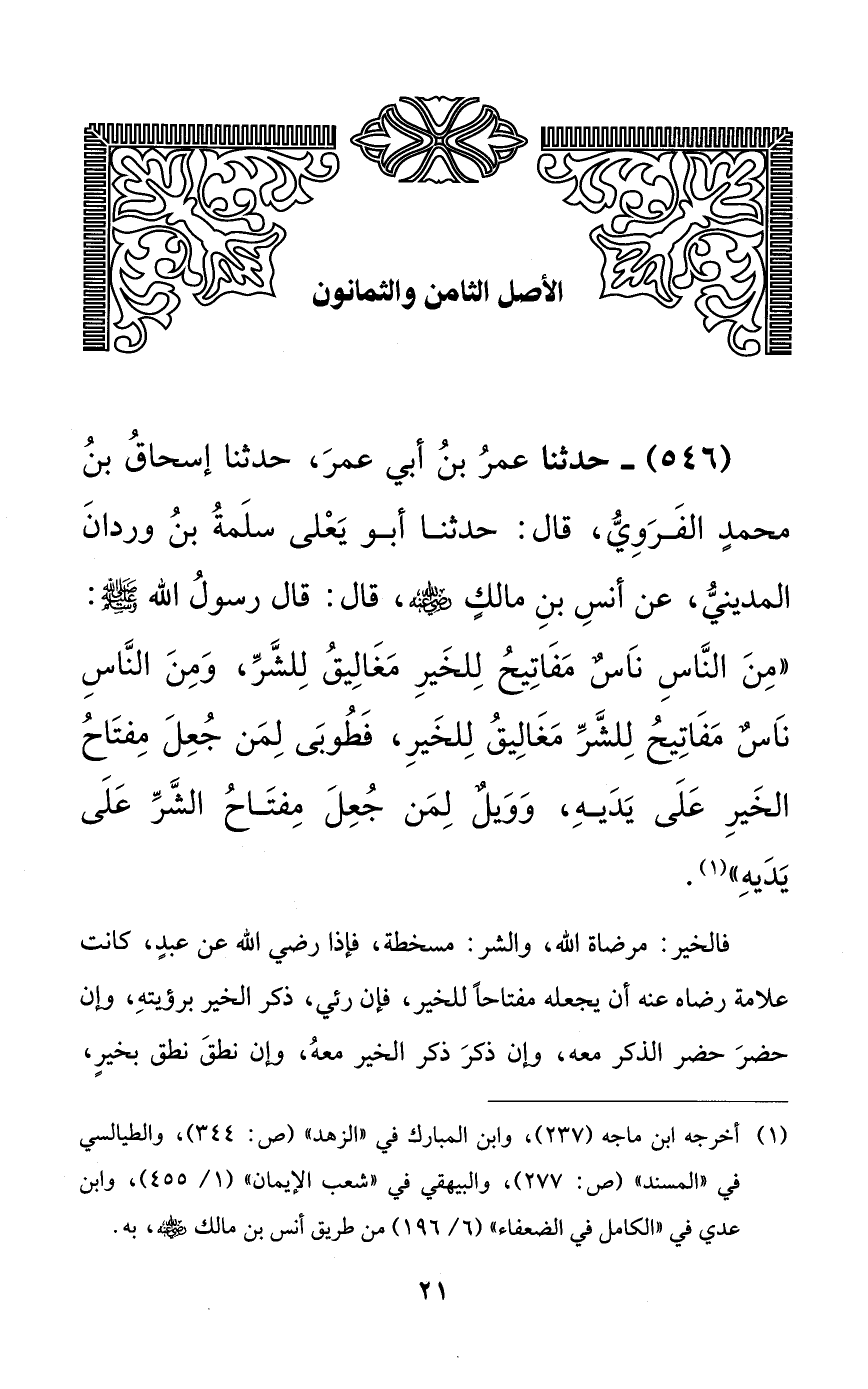 الأصل الثامن والثمانون
(٥٤٦) ـ حدثنا عمرُ بنُ أبي عمرَ، حدثنا إسحاقُ بنُ
محمدٍ الفَرَوِيُّ، قال: حدثنا أبو يَعْلى سلَمةُ بنُ وردانَ
المدينيُّ، عن أنسِ بنِ مالكٍ رضي الله عنه، قال: قال رسولُ الله ﷺ:
«مِنَ النَّاسِ نَاسٌ مَفَاتِيحُ لِلخَيرِ مَغَالِيقُ لِلشَّرِّ، وَمِنَ النَّاسِ
نَاسٌ مَفَاتِيحُ لِلشَّرِّ مَغَالِيقُ لِلخَيرِ، فَطُوبَى لِمَن جُعِلَ مِفتَاحُ
الخَيرِ عَلَى يَدَيهِ، وَوَيلٌ لِمَن جُعِلَ مِفتَاحُ الشَّرِّ عَلَى
يَدَيهِ»(١).
فالخير: مرضاة الله، والشر: مسخطة، فإذا رضي الله عن عبدٍ، كانت
علامة رضاه عنه أن يجعله مفتاحاً للخير، فإن رئي، ذكر الخير برؤيتهِ، وإن
حضرَ حضر الذكر معه، وإن ذكرَ ذكر الخير معهُ، وإن نطقَ نطق بخيرٍ،
(١) أخرجه ابن ماجه (٢٣٧)، وابن المبارك في «الزهد» (ص: ٣٤٤)، والطيالسي
في «المسند» (ص: ٢٧٧)، والبيهقي في «شعب الإيمان» (١/ ٤٥٥)، وابن
عدي في «الكامل في الضعفاء» (٦/ ١٩٦) من طريق أنس بن مالك رضي الله عنه، به.
٢١